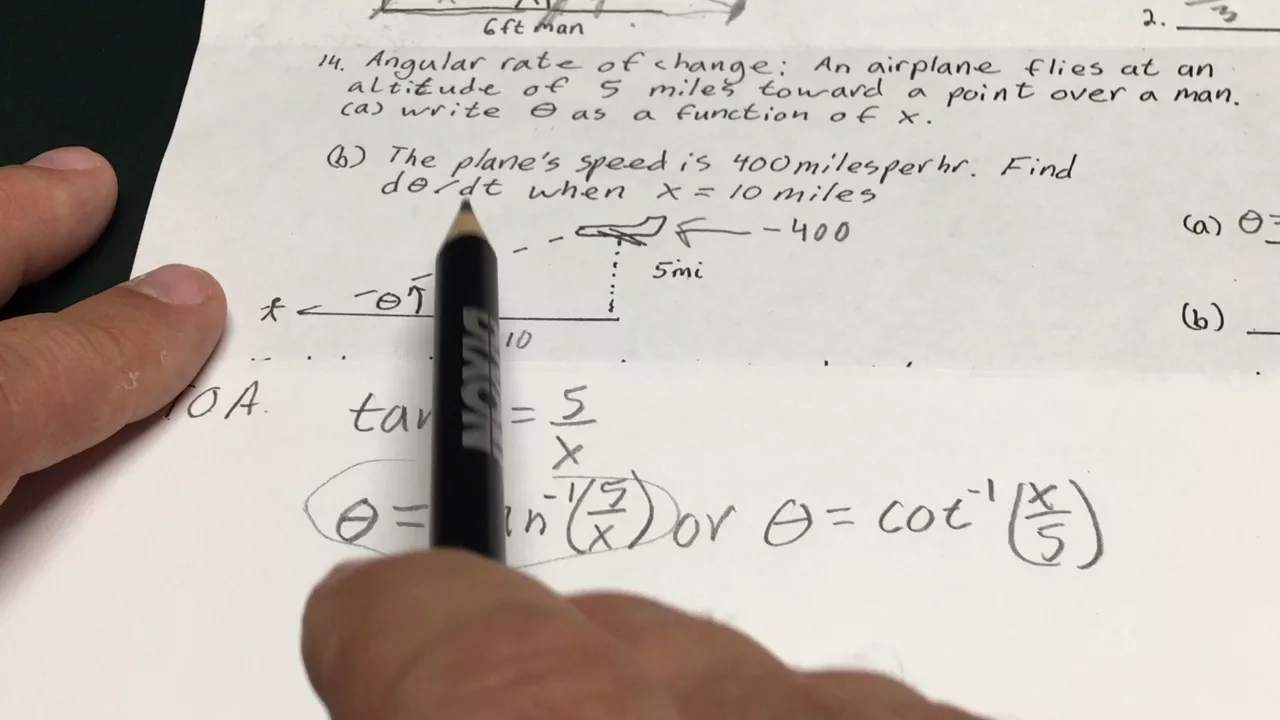 6ft man
2.
14. Angular rate of change: An airplane flies at an
altitude of 5 miles toward a point over a man.
(a) write θ as a function of x.
(b) The plane's speed is 400 miles per hr. Find
dθ/dt when x = 10 miles
(a) θ=
-400
5mi
θ
(b)
10
OA.
= 5/x
θ = n⁻¹(5/x) or θ = cot⁻¹(x/5)
DIXON